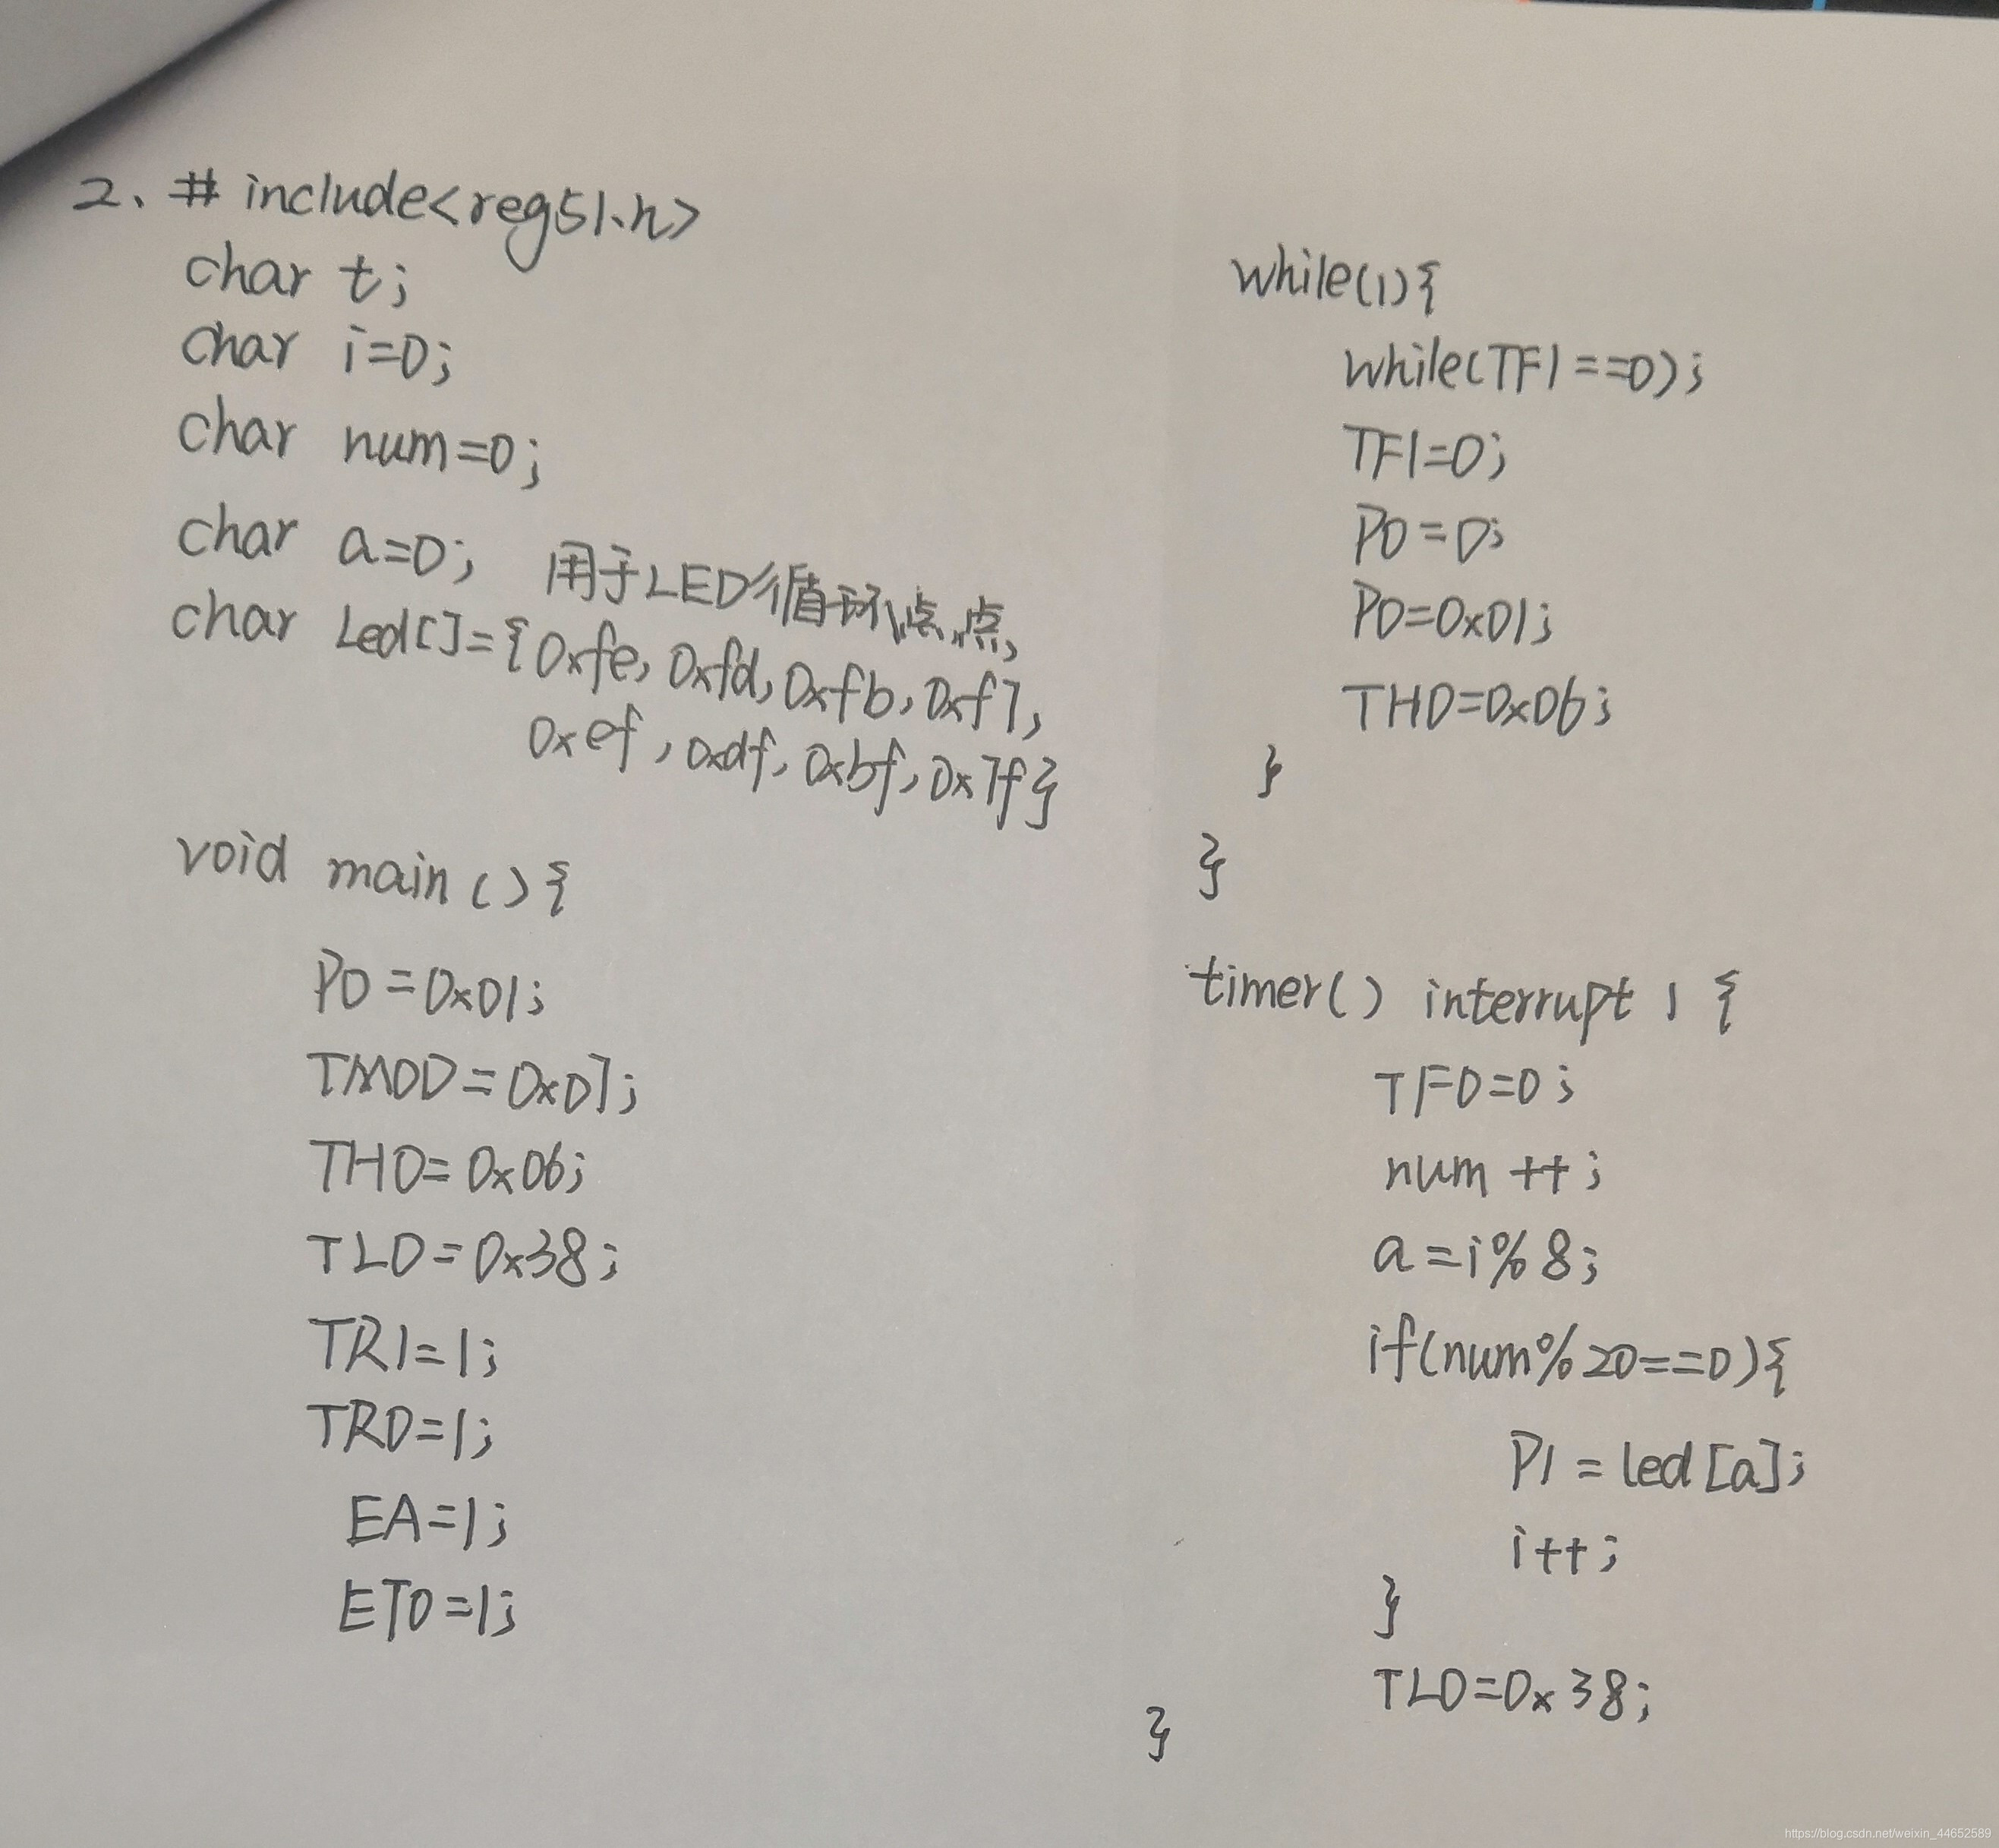 2、# include<reg51.h>
char t;
char i=0;
char num=0;
char a=0; 用于LED循环点点,
char Led[]={0xfe, 0xfd, 0xfb, 0xf7,
0xef, 0xdf, 0xbf, 0x7f}
void main(){
P0=0x01;
TMOD=0x07;
TH0=0x06;
TL0=0x38;
TR1=1;
TR0=1;
EA=1;
ET0=1;
while(1){
while(TF1==0);
TF1=0;
P0=0;
P0=0x01;
TH0=0x06;
}
}
timer() interrupt 1 {
TF0=0;
num++;
a=i%8;
if(num%20==0){
P1=led[a];
i++;
}
TL0=0x38;
}
https://blog.csdn.net/weixin_44652589